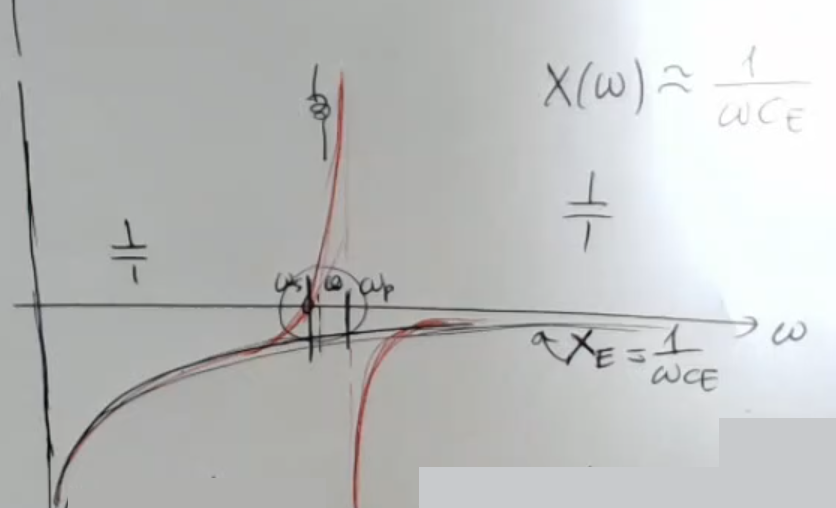 X(ω) ≈ 1/ωC_E
ω_s ω ω_p
ω
X_E = 1/ωC_E